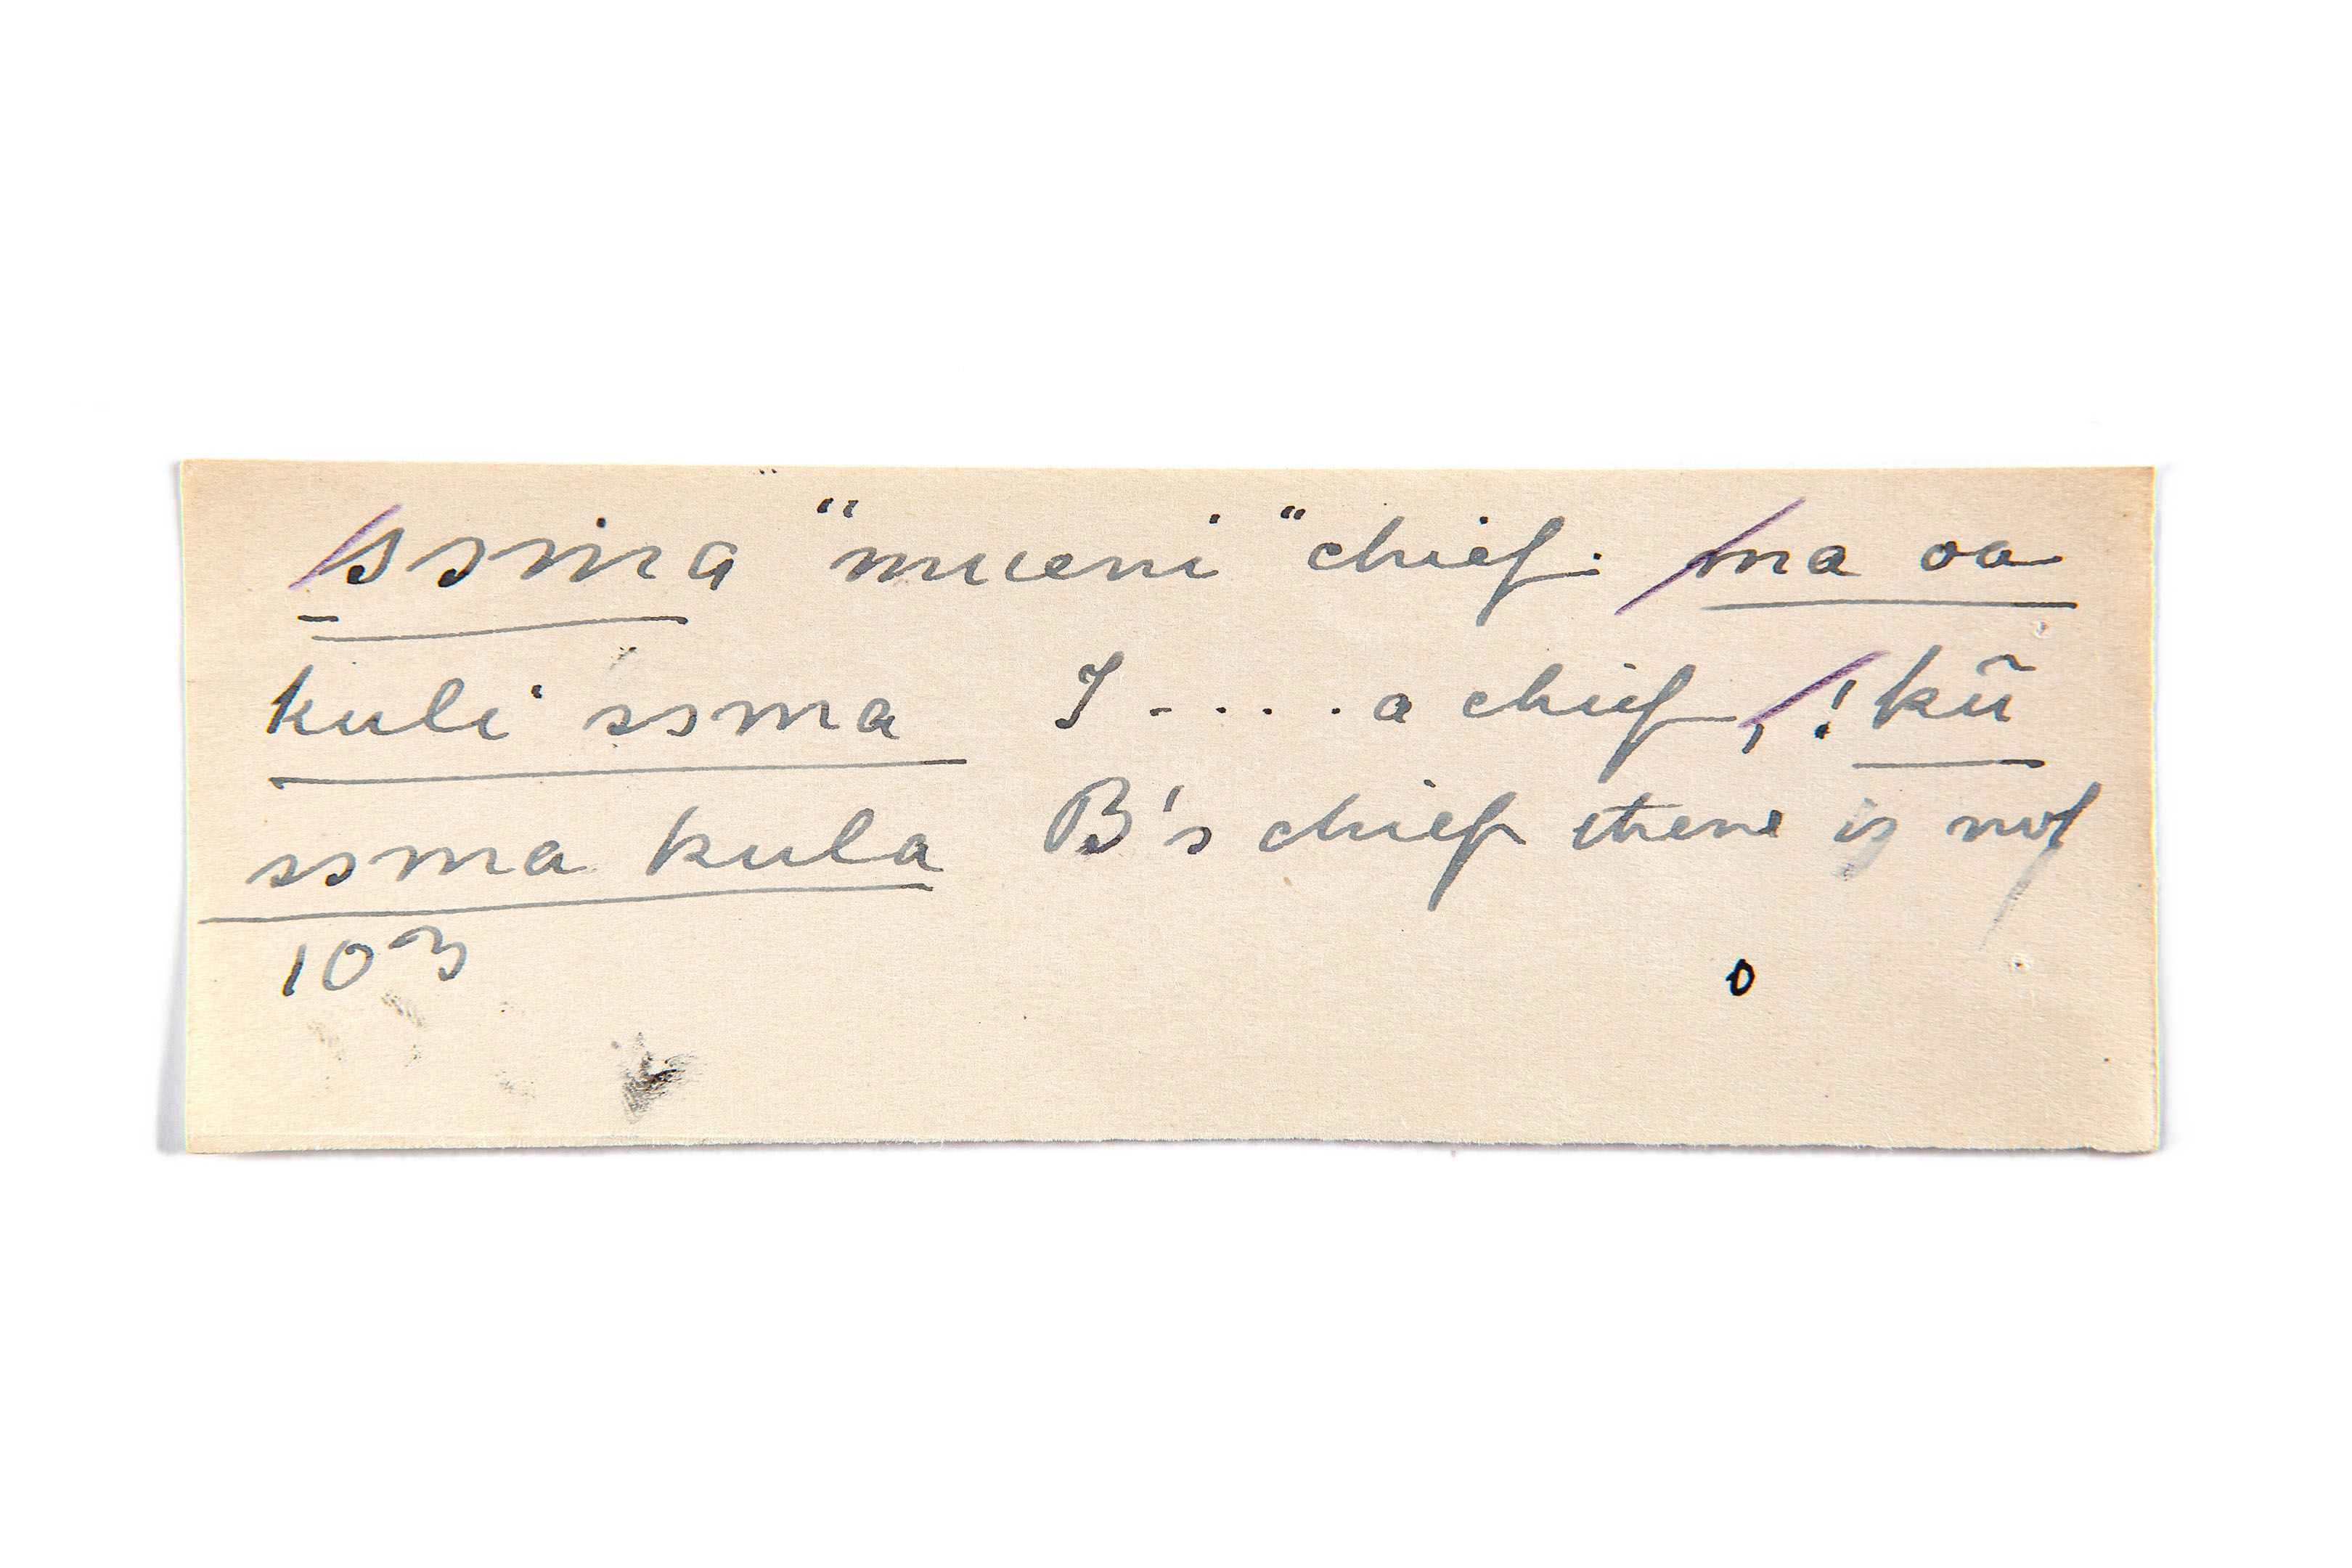 ssma "mueni" chief. ma oa
kuli ssma I ..... a chief, !kũ
ssma kula B's chief there is not
103